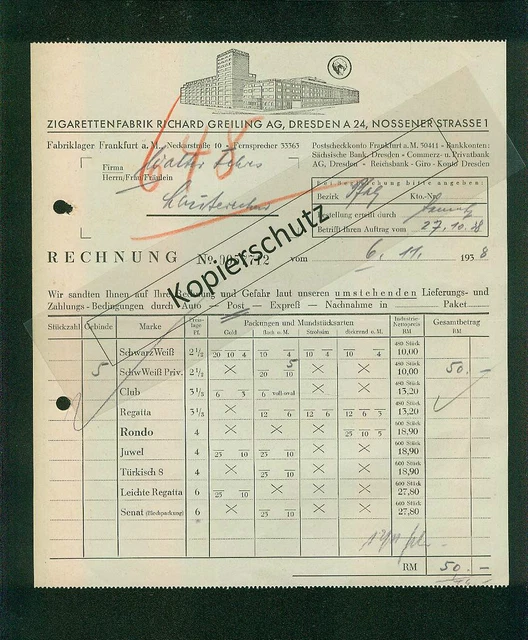 ZIGARETTENFABRIK RICHARD GREILING AG, DRESDEN A 24, NOSSENER STRASSE 1
Fabriklager Frankfurt a. M., Neckarstraße 10 - Fernsprecher 33363
Postscheckkonto Frankfurt a. M. 50441 - Bankkonten:
Sächsische Bank, Dresden - Commerz- u. Privatbank
AG, Dresden - Reichsbank-Giro-Konto Dresden
648
Firma Walter
Herrn/Frau/Fräulein
Bei Bezahlung bitte angeben:
Bezirk Pfalz Kto.-Nr.
Bestellung erteilt durch
Betrifft Ihren Auftrag vom 27.10.38
RECHNUNG No. vom 6. 11. 1938
Kopierschutz
Wir sandten Ihnen auf Ihre Rechnung und Gefahr laut unseren umstehenden Lieferungs- und
Zahlungs-Bedingungen durch Auto - Post - Expreß - Nachnahme in Paket
Stückzahl Gebinde Marke Packungen und Mundstücksarten Gesamtbetrag
Gold flach o. M. Strohalm dickrund o. M. RM
Schwarz Weiß 2 1/2 20 10 4 10 4 10 10 4 480 Stück 10,00
5 SchwWeiß Priv. 2 1/2 5 20 10 480 Stück 10,00 50.-
Club 3 1/3 6 3 6 voll-oval 480 Stück 13,20
Regatta 3 1/3 12 6 12 6 12 6 3 480 Stück 13,20
Rondo 4 25 10 5 600 Stück 18,90
Juwel 4 25 10 25 10 600 Stück 18,90
Türkisch 8 4 25 10 600 Stück 18,90
Leichte Regatta 6 25 10 600 Stück 27,80
Senat (Blechpackung) 6 25 10 600 Stück 27,80
RM 50.-